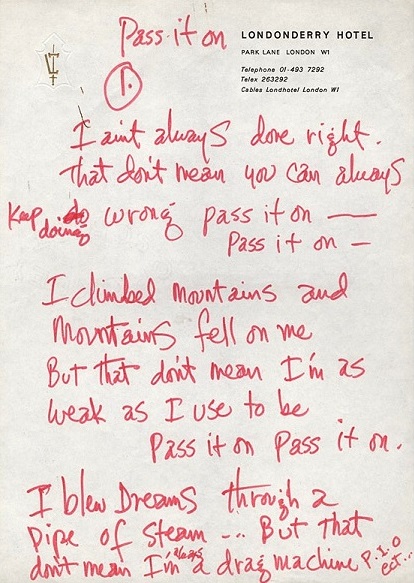 Pass it on
LONDONDERRY HOTEL
PARK LANE LONDON W1
Telephone 01-493 7292
Telex 263292
Cables Londhotel London W1
1.
I aint always done right.
that don't mean you can always
Keep doing wrong pass it on —
Pass it on —
I climbed mountains and
Mountains fell on me
But that don't mean I'm as
weak as I use to be
Pass it on Pass it on.
I blew Dreams through a
Pipe of steam ... But that
don't mean I'm always a drag machine P.I.O
ect..